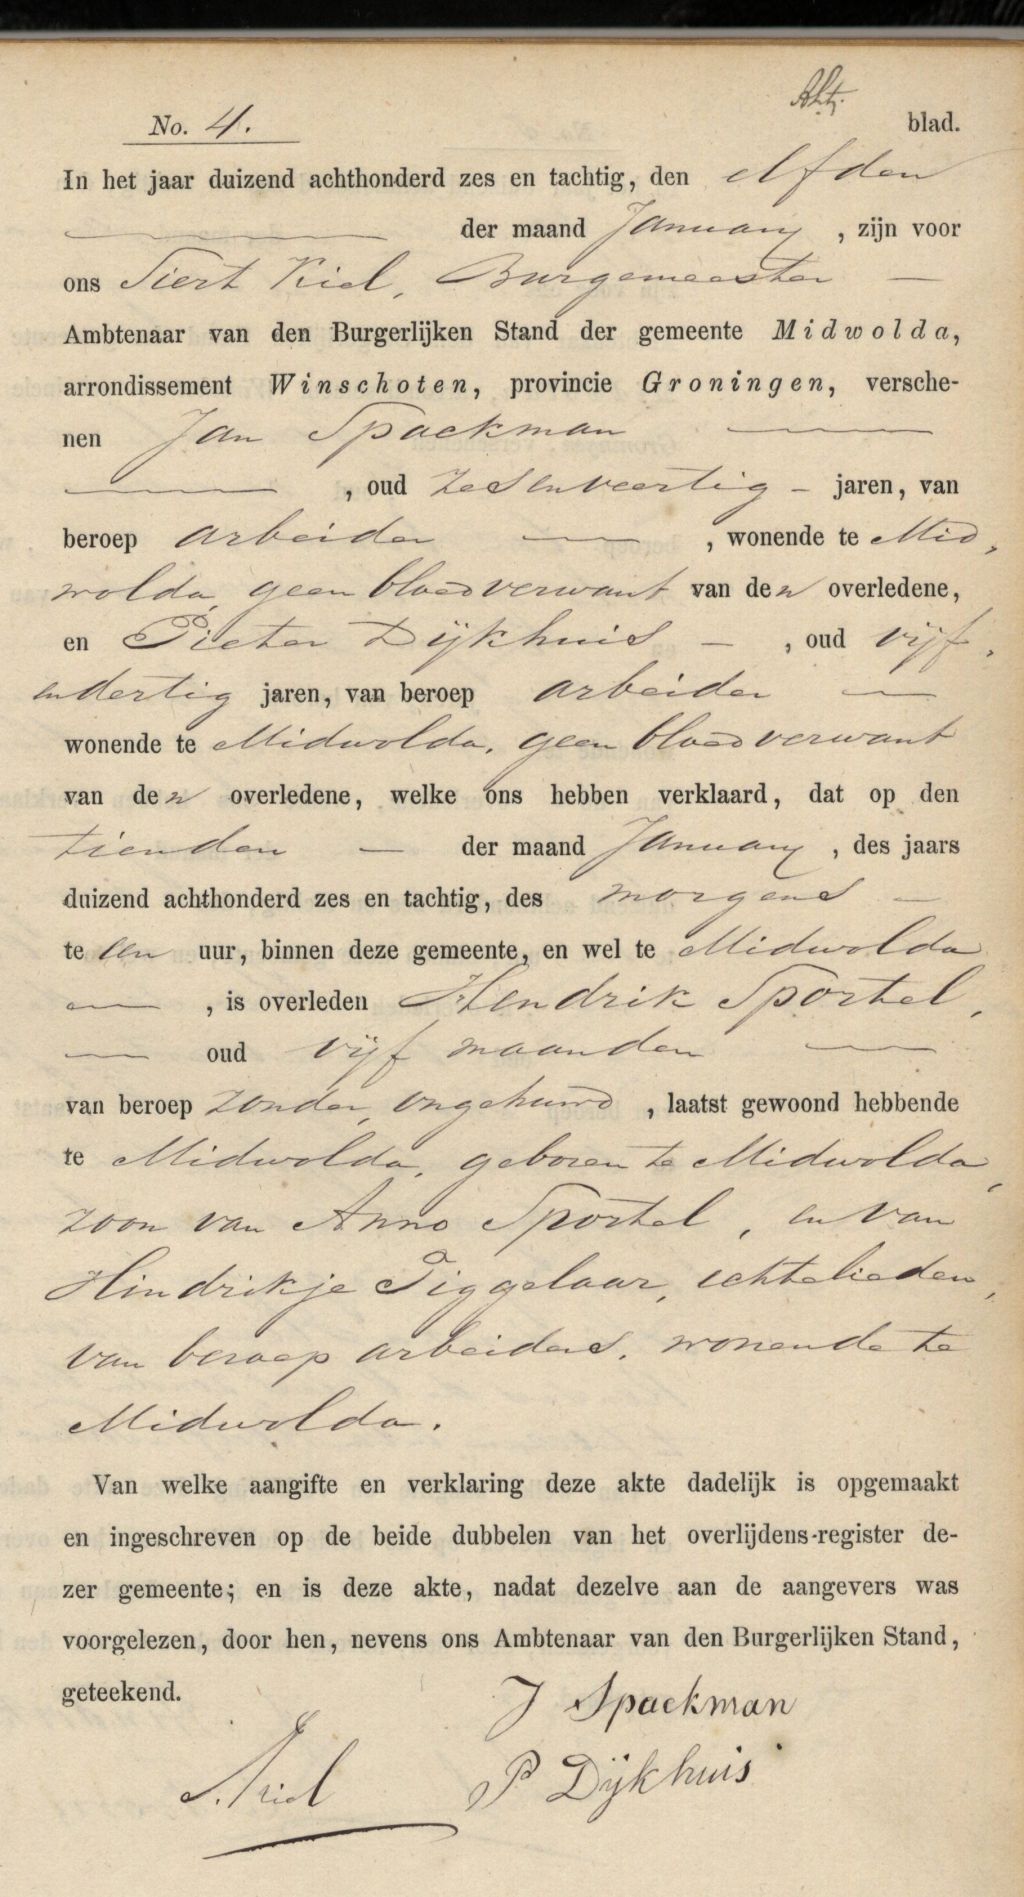 No. 4.
blad.
In het jaar duizend achthonderd zes en tachtig, den elfden
der maand January, zijn voor
ons Siert Kiel, Burgemeester
Ambtenaar van den Burgerlijken Stand der gemeente Midwolda,
arrondissement Winschoten, provincie Groningen, versche-
nen Jan Spackman
, oud zesenveertig jaren, van
beroep arbeider, wonende te Mid
wolda, geen bloedverwant van den overledene,
en Pieter Dijkhuis, oud vijf
endertig jaren, van beroep arbeider
wonende te Midwolda, geen bloedverwant
van den overledene, welke ons hebben verklaard, dat op den
tienden der maand January, des jaars
duizend achthonderd zes en tachtig, des morgens
te een uur, binnen deze gemeente, en wel te Midwolda
, is overleden Hendrik Sportel,
oud vijf maanden
van beroep zonder, ongehuwd, laatst gewoond hebbende
te Midwolda, geboren te Midwolda,
zoon van Anno Sportel, en van
Hindrikje Tiggelaar, echtelieden,
van beroep arbeiders, wonende te
Midwolda.
Van welke aangifte en verklaring deze akte dadelijk is opgemaakt
en ingeschreven op de beide dubbelen van het overlijdens-register de-
zer gemeente; en is deze akte, nadat dezelve aan de aangevers was
voorgelezen, door hen, nevens ons Ambtenaar van den Burgerlijken Stand,
geteekend.
J Spackman
S. Kiel
P Dijkhuis